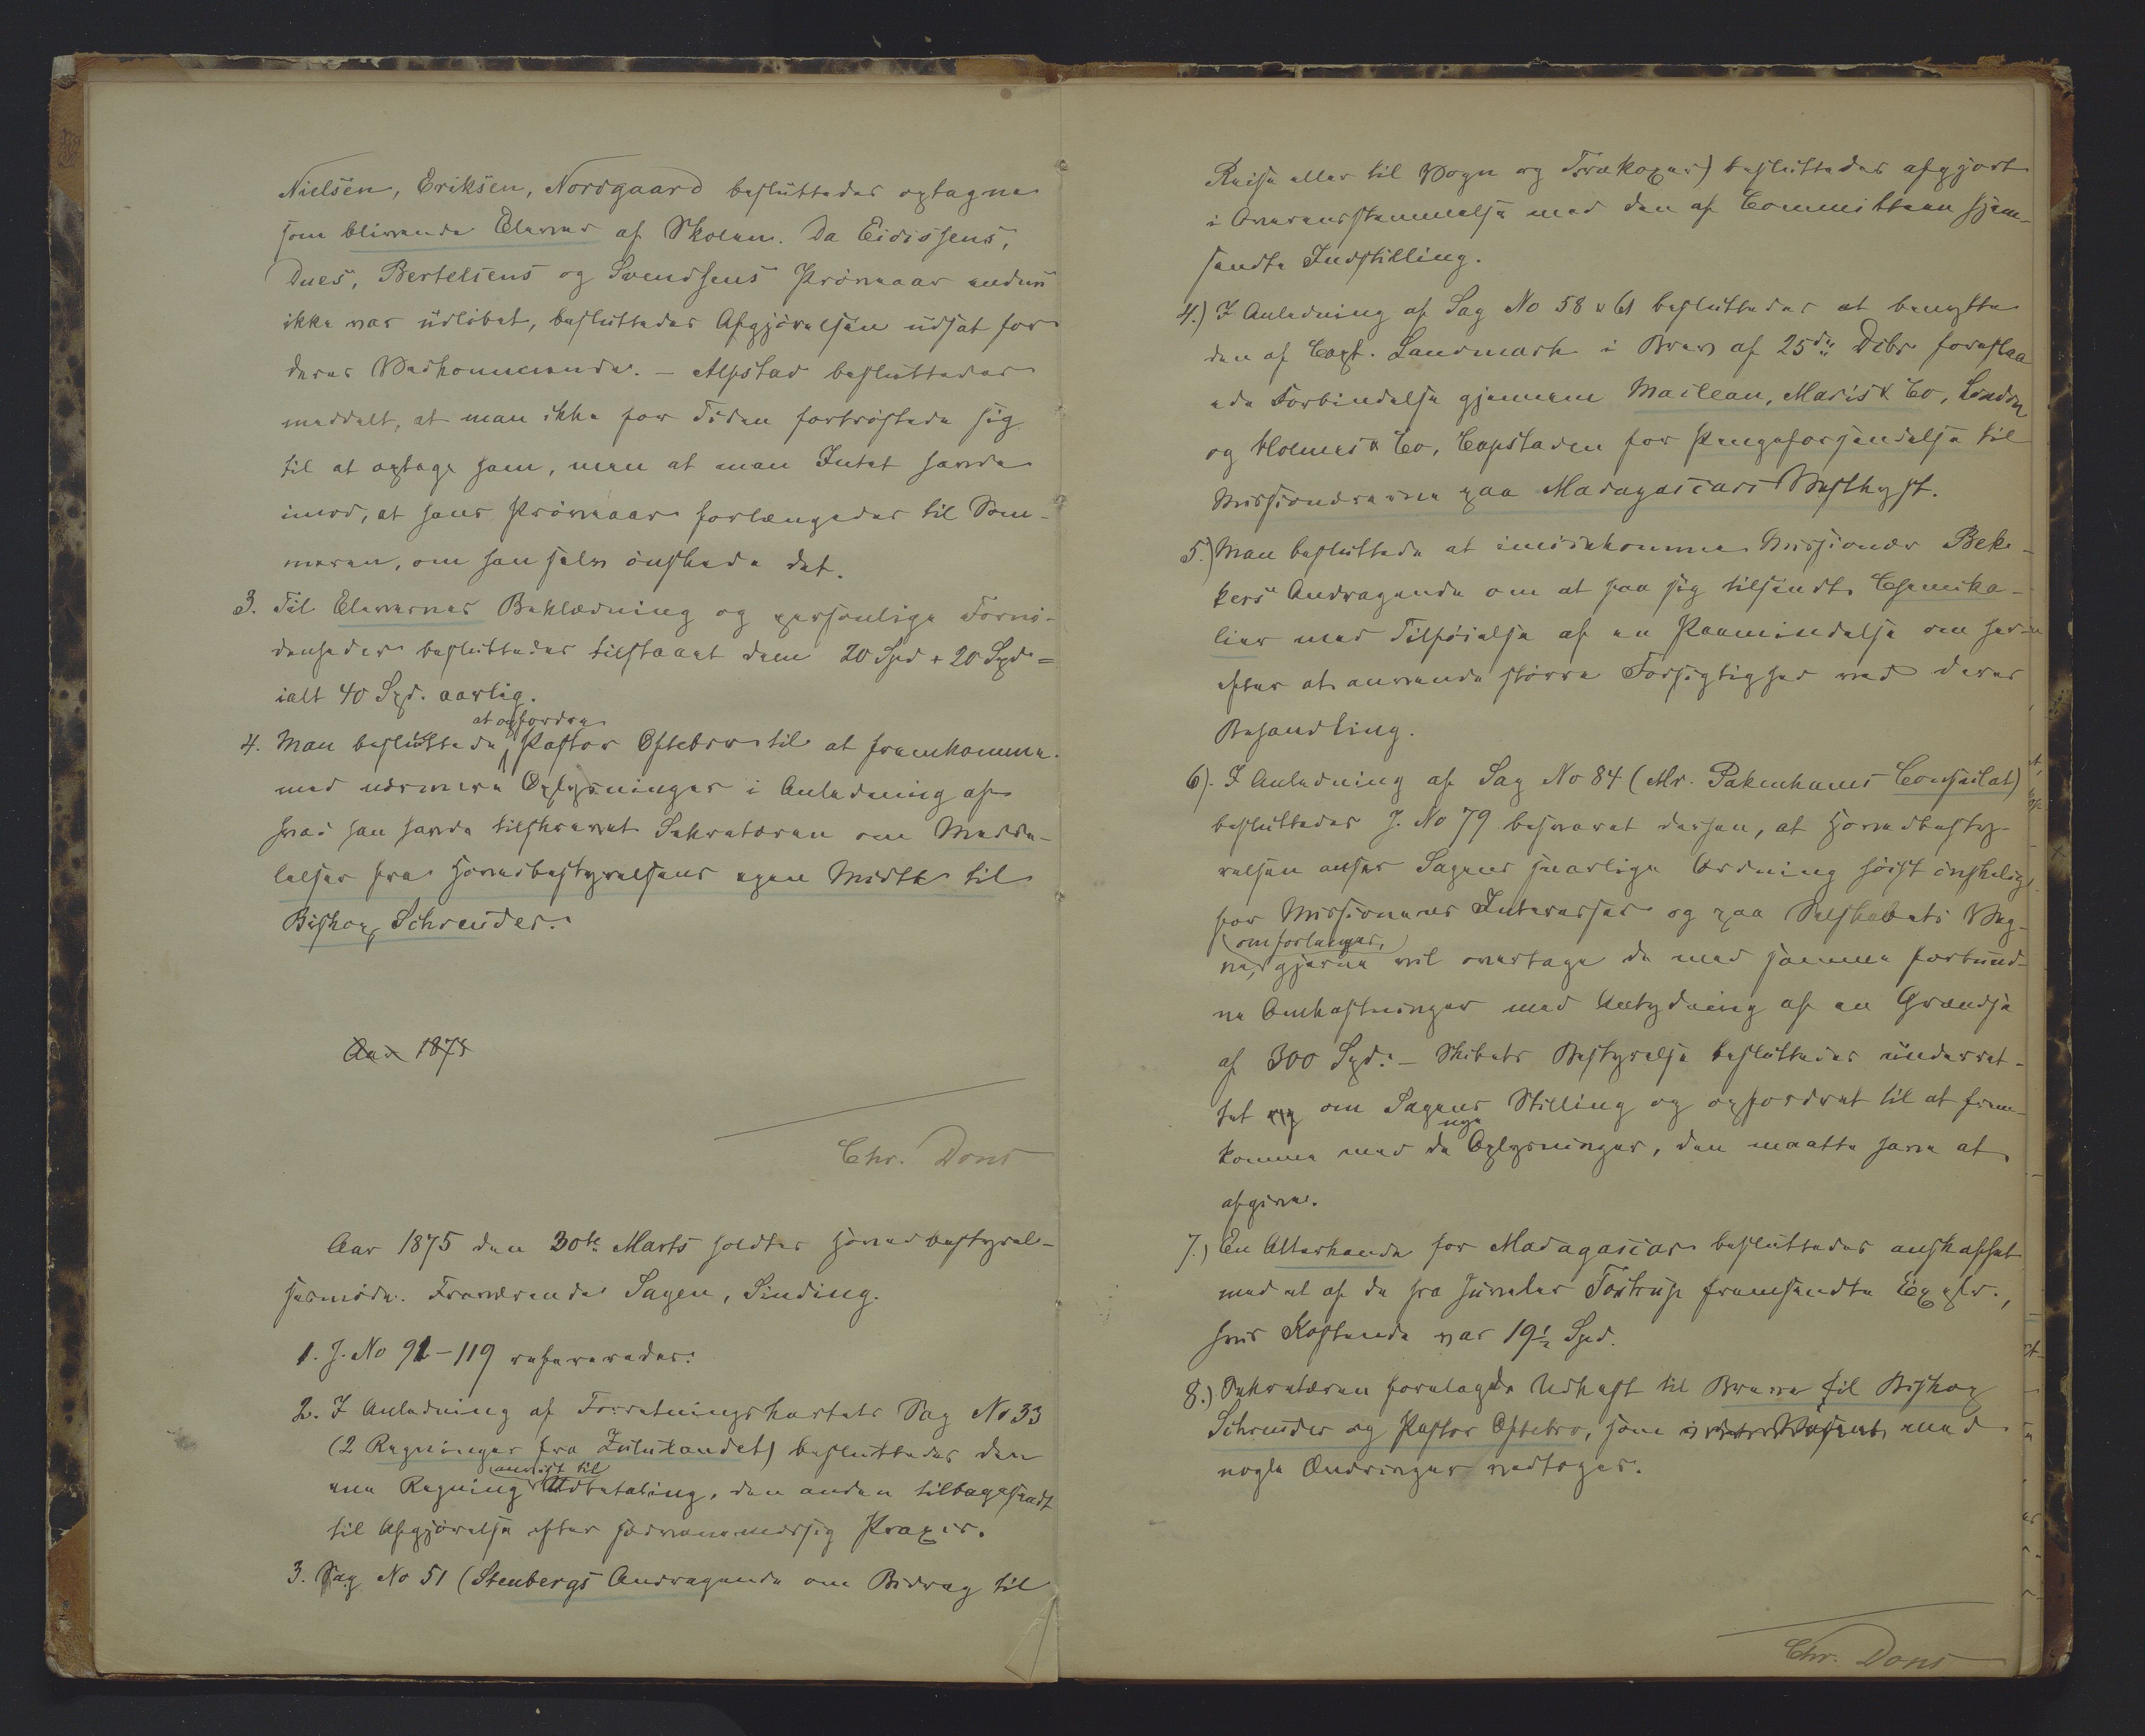 Nielsen, Eriksen, Nordgaard besluttedes optagne
som blivende Elever af Skolen. Da Eidissens,
Dues, Bertelsens og Svendsens Prøveaar endnu
ikke var udløbet, besluttedes Afgjørelsen udsat for
deres Vedkommende. – Alfstad besluttedes
meddelt, at man ikke for Tiden fortrøstede sig
til at optage ham, men at man Intet havde
imod, at hans Prøveaar forlængedes til Som-
meren, om han selv ønskede det.
3. Til Elevernes Beklædning og personlige Fornø-
denheder besluttedes tilstaaet dem 20 Spd + 20 Spd =
ialt 40 Spd. aarlig.
at opfordre
4. Man besluttede Pastor Oftebro til at fremkomme
med nærmere Oplysninger i Anledning af
hvad han havde tilskrevet Sekretæren om Medde-
lelser fra Hovedbestyrelsens egen Midte til
Biskop Schreuder.
Aar 1875
Chr. Dons
Aar 1875 den 30te Marts holdtes Hovedbestyrel-
sesmøde. Fraværende Sagen, Sinding.
1. J. No 91–119 refereredes.
2. I Anledning af Forretningskartets Sag No 33
(2 Regninger fra Zululandet) besluttedes den
anvist til
ene Regning Udbetaling, den anden tilbagesendt
til Afgjørelse efter sædvanemæssig Praxis.
3. Sag No 51 (Stenbergs Andragende om Bidrag til
Reise eller til Vogn og Trækoxer) besluttedes afgjort
i Overensstemmelse med den af Committeen hjem-
sendte Indstilling.
4.) I Anledning af Sag No 58 & 61 besluttedes at benytte
den af Capt. Landmark i Brev af 25de Dcbr foreslaa
ede Forbindelse gjennem Maclean, Maris & Co, London
og Holmes & Co, Capstaden for Pengeforsendelse til
Missionærerne paa Madagascars Vestkyst.
5.) Man besluttede at imødekomme Missionær Bek-
kers Andragende om at faa sig tilsendt Chemika-
lier med Tilføielse af en Paamindelse om her-
efter at anvende større Forsigtighed ved deres
Behandling.
6). I Anledning af Sag No 84 (Mr. Pakenhams Consulat)
besluttedes J. No 79 besvaret derhen, at Hovedbesty-
relsen anser Sagens snarlige Ordning høist ønskelig
for Missionens Interesser og paa Selskabets Veg-
om forlanges,
ne, gjerne vil overtage de med samme forbund-
ne Omkostninger med Antydning af en Grændse
af 300 Spd. – Skibets Bestyrelse besluttedes underret-
tet om Sagens Stilling og opfordret til at frem-
nye
komme med de Oplysninger, den maatte have at
afgive.
7.) En Alterkande for Madagascar besluttedes anskaffet
med et af de fra Juveler Tostrup fremsendte Explr.,
hvis Kostende var 19½ Spd.
8.) Sekretæren forelagde Udkast til Breve til Biskop
Schreuder og Pastor Oftebro, som med
nogle Ændringer vedtoges.
Chr. Dons